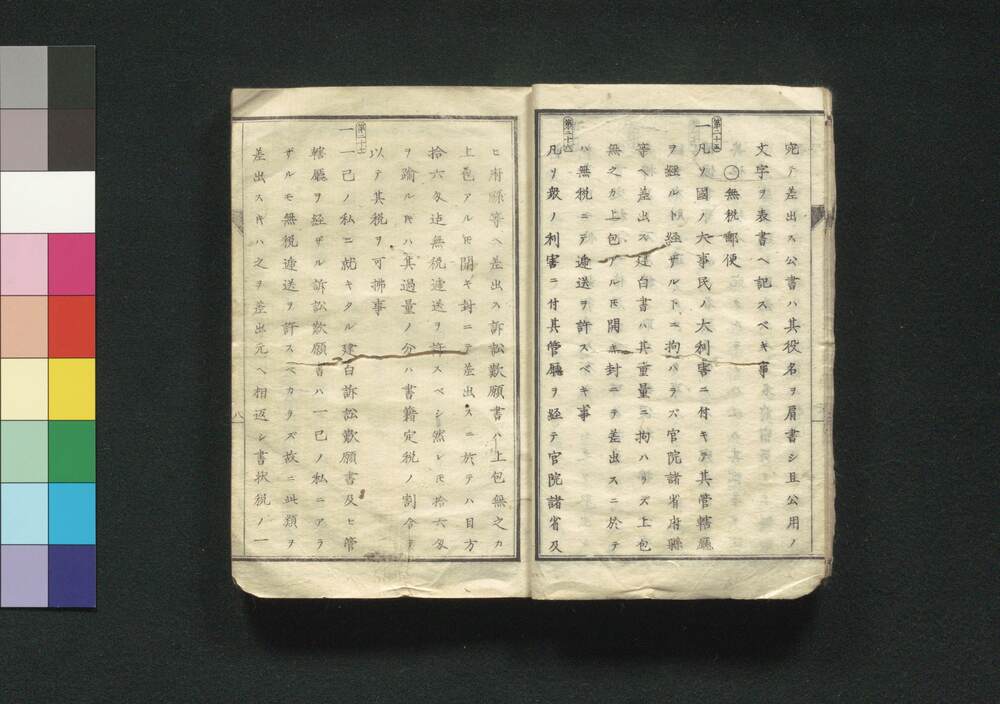 宛テ差出ス公書ハ其役名ヲ肩書シ且公用ノ
文字ヲ表書ヘ記スベキ事
○無税郵便
第二十五
一
凡ソ國ノ大事民ノ大利害ニ付キテ其管轄廳
ヲ經ルト經ザルトニ拘ハラズ官院諸省府縣
等ヘ差出ス建白書ハ其重量ニ拘ハラズ上包
無之カ上包アルモ開キ封ニテ差出スニ於テ
ハ無税ニテ逓送ヲ許スベキ事
第二十六
凡ソ衆ノ利害ニ付其管廳ヲ經テ官院諸省及
ヒ府縣等ヘ差出ス訴訟歎願書ハ上包無之カ
上包アルモ開キ封ニテ差出スニ於テハ目方
拾六匁迠無税逓送ヲ許スベシ然レモ拾六匁
ヲ踰ルトキハ其過量ノ分ハ書籍定税ノ割合ヲ
以テ其税ヲ可拂事
一
一己ノ私ニ就キタル建白訴訟歎願書及ヒ管
轄廳ヲ經ザル訴訟歎願書ハ一己ノ私ニアラ
ザルモ無税逓送ヲ許スベカラズ故ニ此類ヲ
差出ストキハ之ヲ差出元ヘ相返シ書状税ノ一
八